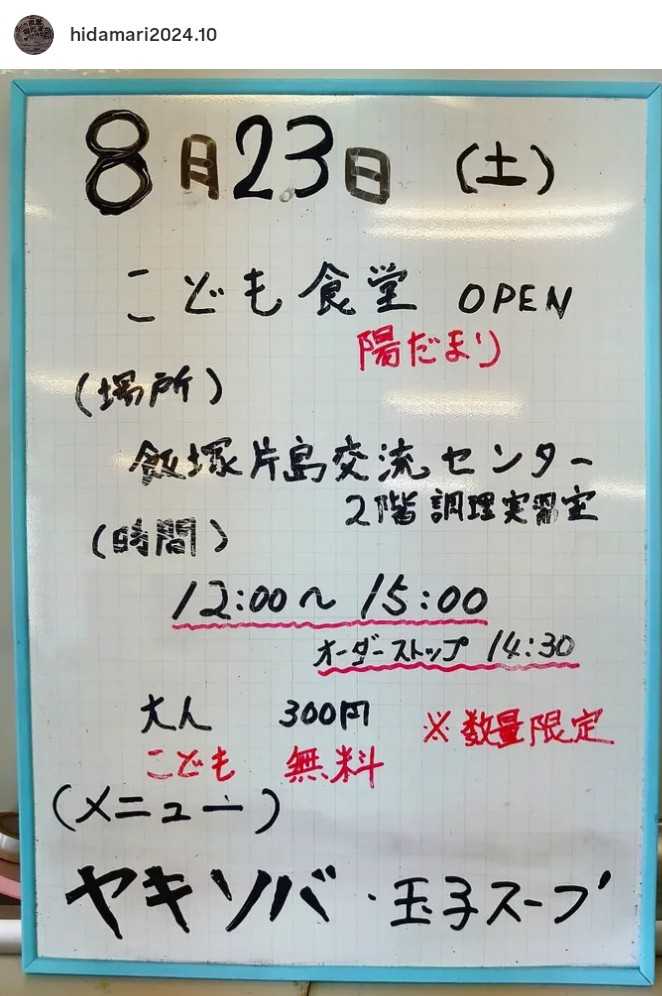 hidamari2024.10
8月23日 (土)
こども食堂 OPEN
陽だまり
(場所)
飯塚片島交流センター
2階 調理実習室
(時間)
12:00〜15:00
オーダーストップ 14:30
大人 300円 ※数量限定
こども 無料
(メニュー)
ヤキソバ・玉子スープ